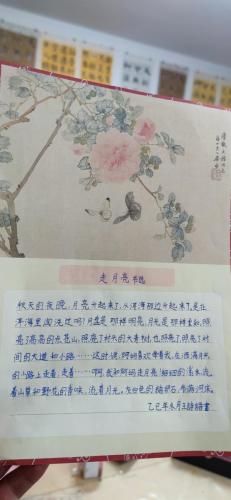 走月亮 书选
秋天的夜晚,月亮升起来了,从洱海那边升起来了,是在
洱海里淘洗过吗?月盘是那样明亮,月光是那样柔和,照
亮了高高的点苍山,照亮了村头的大青树,也照亮了照亮了村
间的大道和小路……这时候,阿妈喜欢牵着我,在洒满月光
的小路上走着,走着……啊,我和阿妈走月亮!细细的溪水,流
着山草和野花的香味,流着月光。灰白色的鹅卵石,布满河床。
乙巳年